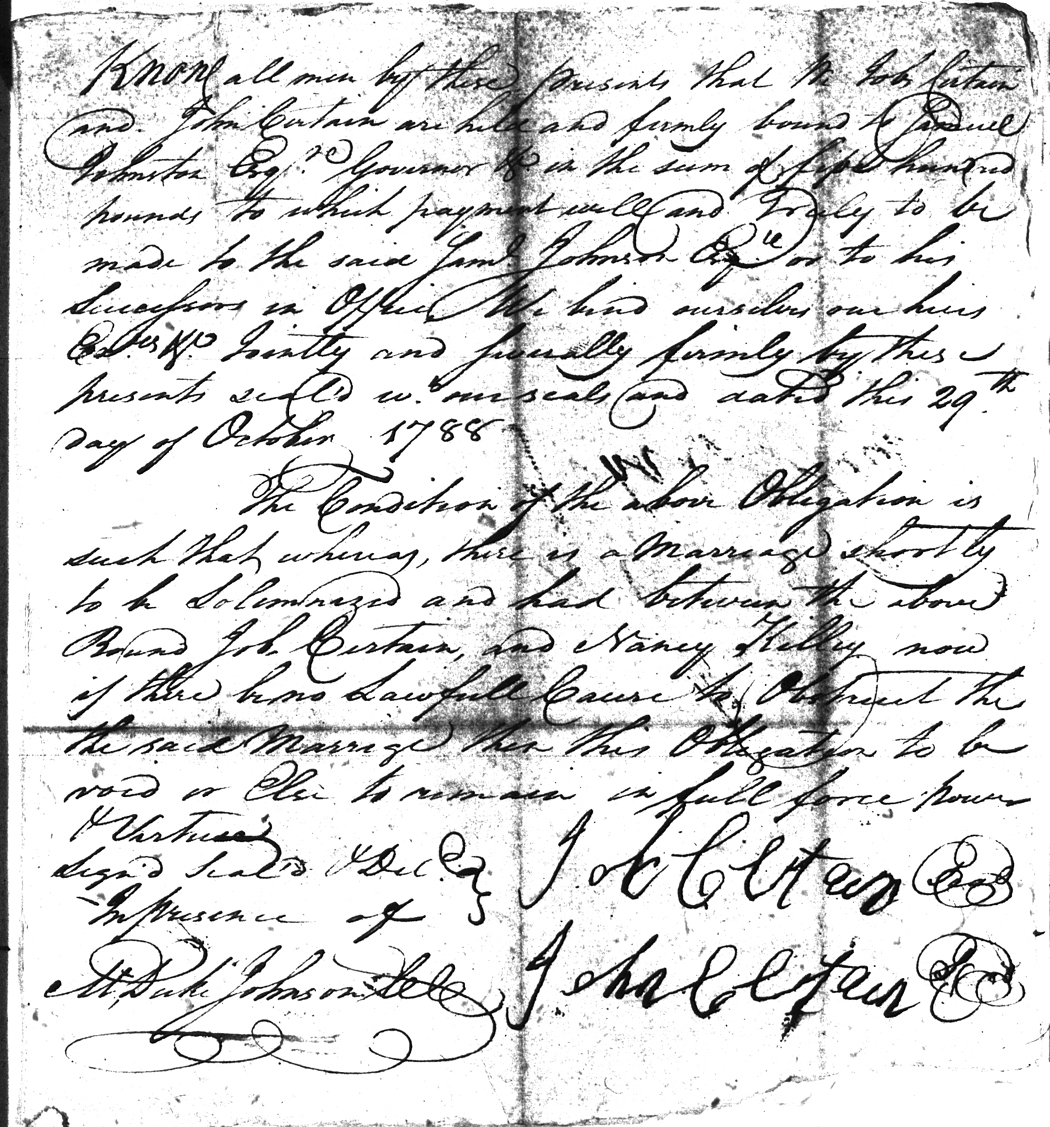 Know all men by these presents that We Job Certain
and John Certain are held and firmly bound to Samuel
Johnston Esqr. Governor &c in the sum of five hundred
pounds to which payment well and Truly to be
made to the said Saml. Johnson Esqr. or to his
Successors in Office We bind ourselves our heirs
Exrs. &c Jointly and severally firmly by these
presents seal'd w. our seals and dated this 29th
day of October 1788
The Condition of the above Obligation is
such that whereas, there is a Marriage shortly
to be Solemnized and had between the above
Bound Job Certain, and Nancy Killey now
if there be no Lawfull Cause to Obstruct the
the said Marriage then this Obligation to be
void or Else to remain in full force power
& Vertue
Sign'd Seal'd & Del.
In presence of
Job Certain
M Duke Johnson
John Certain